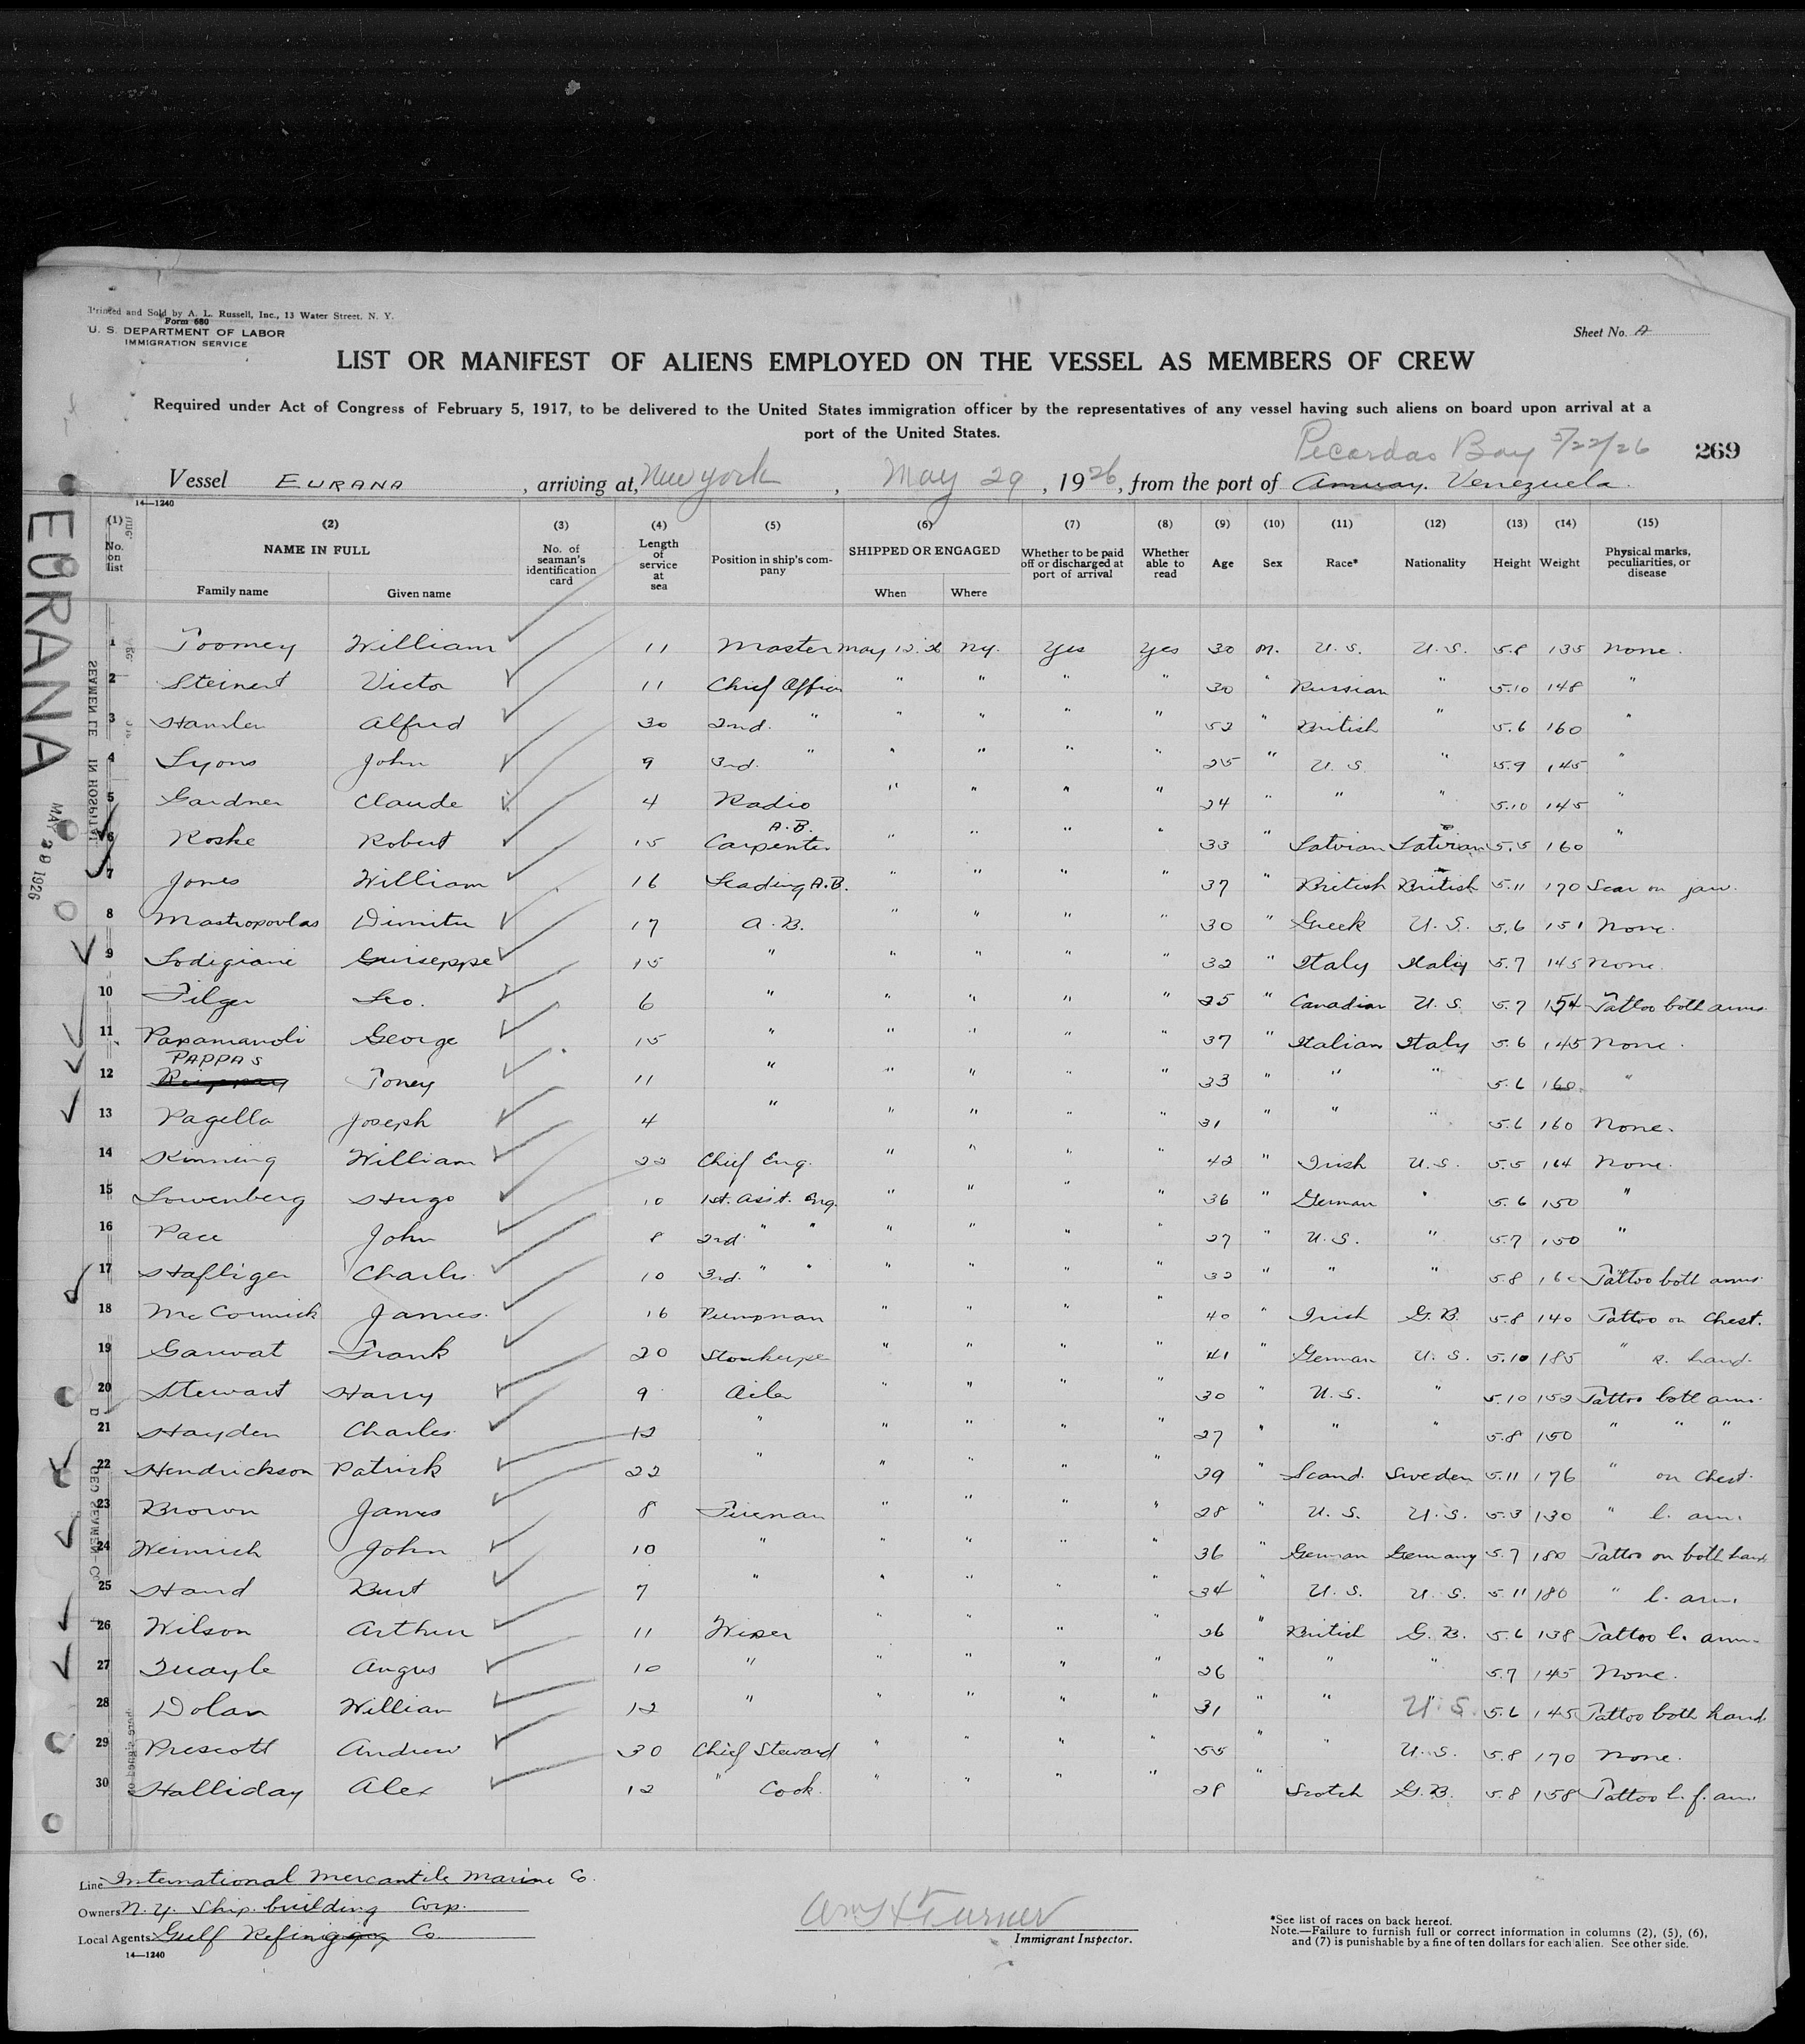 Printed and Sold by A. L. Russell, Inc., 13 Water Street, N. Y.
Form 680
U. S. DEPARTMENT OF LABOR
IMMIGRATION SERVICE
Sheet No. A
LIST OR MANIFEST OF ALIENS EMPLOYED ON THE VESSEL AS MEMBERS OF CREW
Required under Act of Congress of February 5, 1917, to be delivered to the United States immigration officer by the representatives of any vessel having such aliens on board upon arrival at a
port of the United States.
Pecardas Bay 5/22/26 269
Vessel EURANA, arriving at, New York, May 29, 1926, from the port of Amuay. Venezuela.
14—1240
(1) (2) (3) (4) (5) (6) (7) (8) (9) (10) (11) (12) (13) (14) (15)
No. on list NAME IN FULL Family name Given name No. of seaman's identification card Length of service at sea Position in ship's company SHIPPED OR ENGAGED When Where Whether to be paid off or discharged at port of arrival Whether able to read Age Sex Race* Nationality Height Weight Physical marks, peculiarities, or disease
1 Toomey William 11 Master May 12.26 Ny. Yes Yes 30 M. U. S. U. S. 5.8 135 None.
2 Steinert Victor 11 Chief Officer " " " " 30 " Russian " 5.10 148 "
3 Alfred 30 2nd. " " " " " 52 " British " 5.6 160 "
4 Lyons John 9 3rd. " " " " " 25 " U. S. " 5.9 145 "
5 Gardner Claude 4 Radio " " " " 24 " " " 5.10 145 "
6 Roske Robert 15 A.B. Carpenter " " " " 33 " Latvian Latvian 5.5 160 "
7 Jones William 16 Leading A.B. " " " " 37 British British 5.11 170 Scar on jaw.
8 Mastropovlas Dimitu 17 A. B. " " " " 30 " Greek U. S. 5.6 151 None.
9 Lodigiane Guiseppe 15 " " " " " 32 " Italy Italy 5.7 145 None.
10 Filger Leo. 6 " " " " " 25 " Canadian U. S. 5.7 154 Tattoo both arms.
11 Papamanoli George 15 " " " " " 37 " Italian Italy 5.6 145 None.
12 PAPPAS Toney 11 " " " " " 33 " " " 5.6 160 "
13 Pagella Joseph 4 " " " " " 31 " " " 5.6 160 None.
14 Kinning William 22 Chief Eng. " " " " 42 " Irish U. S. 5.5 164 None.
15 Lowenberg Hugo 10 1st. Asit. Eng. " " " 36 " German " 5.6 150 "
16 Pace John 8 2nd " " " " " " 27 " U. S. " 5.7 150 "
17 Hafliger Charles 10 3rd. " " " " " " 32 " " " 5.8 160 Tattoo both arms.
18 McCormick James. 16 Pumpman " " " " 40 " Irish G. B. 5.8 140 Tattoo on Chest.
19 Garwat Frank 20 Storekeeper " " " " 41 " German U. S. 5.10 185 " R. hand.
20 Stewart Harry 9 Oiler " " " " 30 " U. S. " 5.10 152 Tattoo both arms.
21 Hayden Charles 12 " " " " " 27 " " " 5.8 150 " " "
22 Hendrickson Patrick 22 " " " " " 39 " Scand. Sweden 5.11 176 " on Chest.
23 Brown James 8 Fireman " " " " 28 " U. S. U. S. 5.3 130 " l. arm.
24 Weinrich John 10 " " " " " 36 " German Germany 5.7 180 Tattoo on both hand
25 Hand Burt 7 " " " " " 34 " U. S. U. S. 5.11 180 " l. arm.
26 Wilson Arthur 11 Wiper " " " " 26 " British G. B. 5.6 138 Tattoo l. arm.
27 Quayle Angus 10 " " " " " 26 " " " 5.7 145 None.
28 Dolan William 12 " " " " " 31 " " U. S. 5.6 145 Tattoo both hand.
29 Prescott Andrew 30 Chief Steward " " " " 55 " " U. S. 5.8 170 None.
30 Halliday Alex 12 " Cook. " " " " 28 " Scotch G. B. 5.8 158 Tattoo l. f. arm.
EURANA
MAY 29 1926
Line International Mercantile Marine Co.
Owners N. Y. Ship. building Corp.
Local Agents Gulf Refining Co.
14—1240
Wm H Turner
Immigrant Inspector.
*See list of races on back hereof.
Note.—Failure to furnish full or correct information in columns (2), (5), (6),
and (7) is punishable by a fine of ten dollars for each alien. See other side.